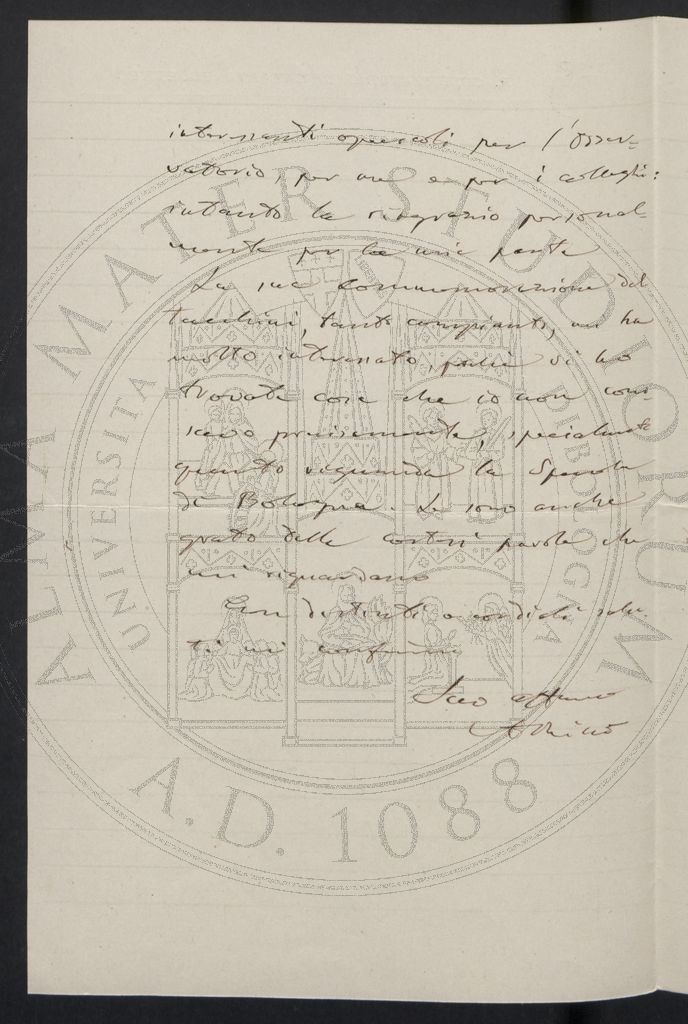 interessanti opuscoli per l'Osser-
vatorio, per me e per i colleghi:
intanto la ringrazio personal-
mente per la mia parte
La sua commemorazione del
Tacchini, tanto compianto, mi ha
molto interessato, perchè vi ho
trovate cose che io non cono-
scevo precisamente, specialmente
quanto riguarda la Specola
di Bologna. Le sono anche
grato delle cortesi parole che
mi riguardano
Con distinti e cordiali salu-
ti mi confermo
Suo affmo
A Riccò
ALMA MATER STUDIORUM
UNIVERSITA DI BOLOGNA
A.D. 1088